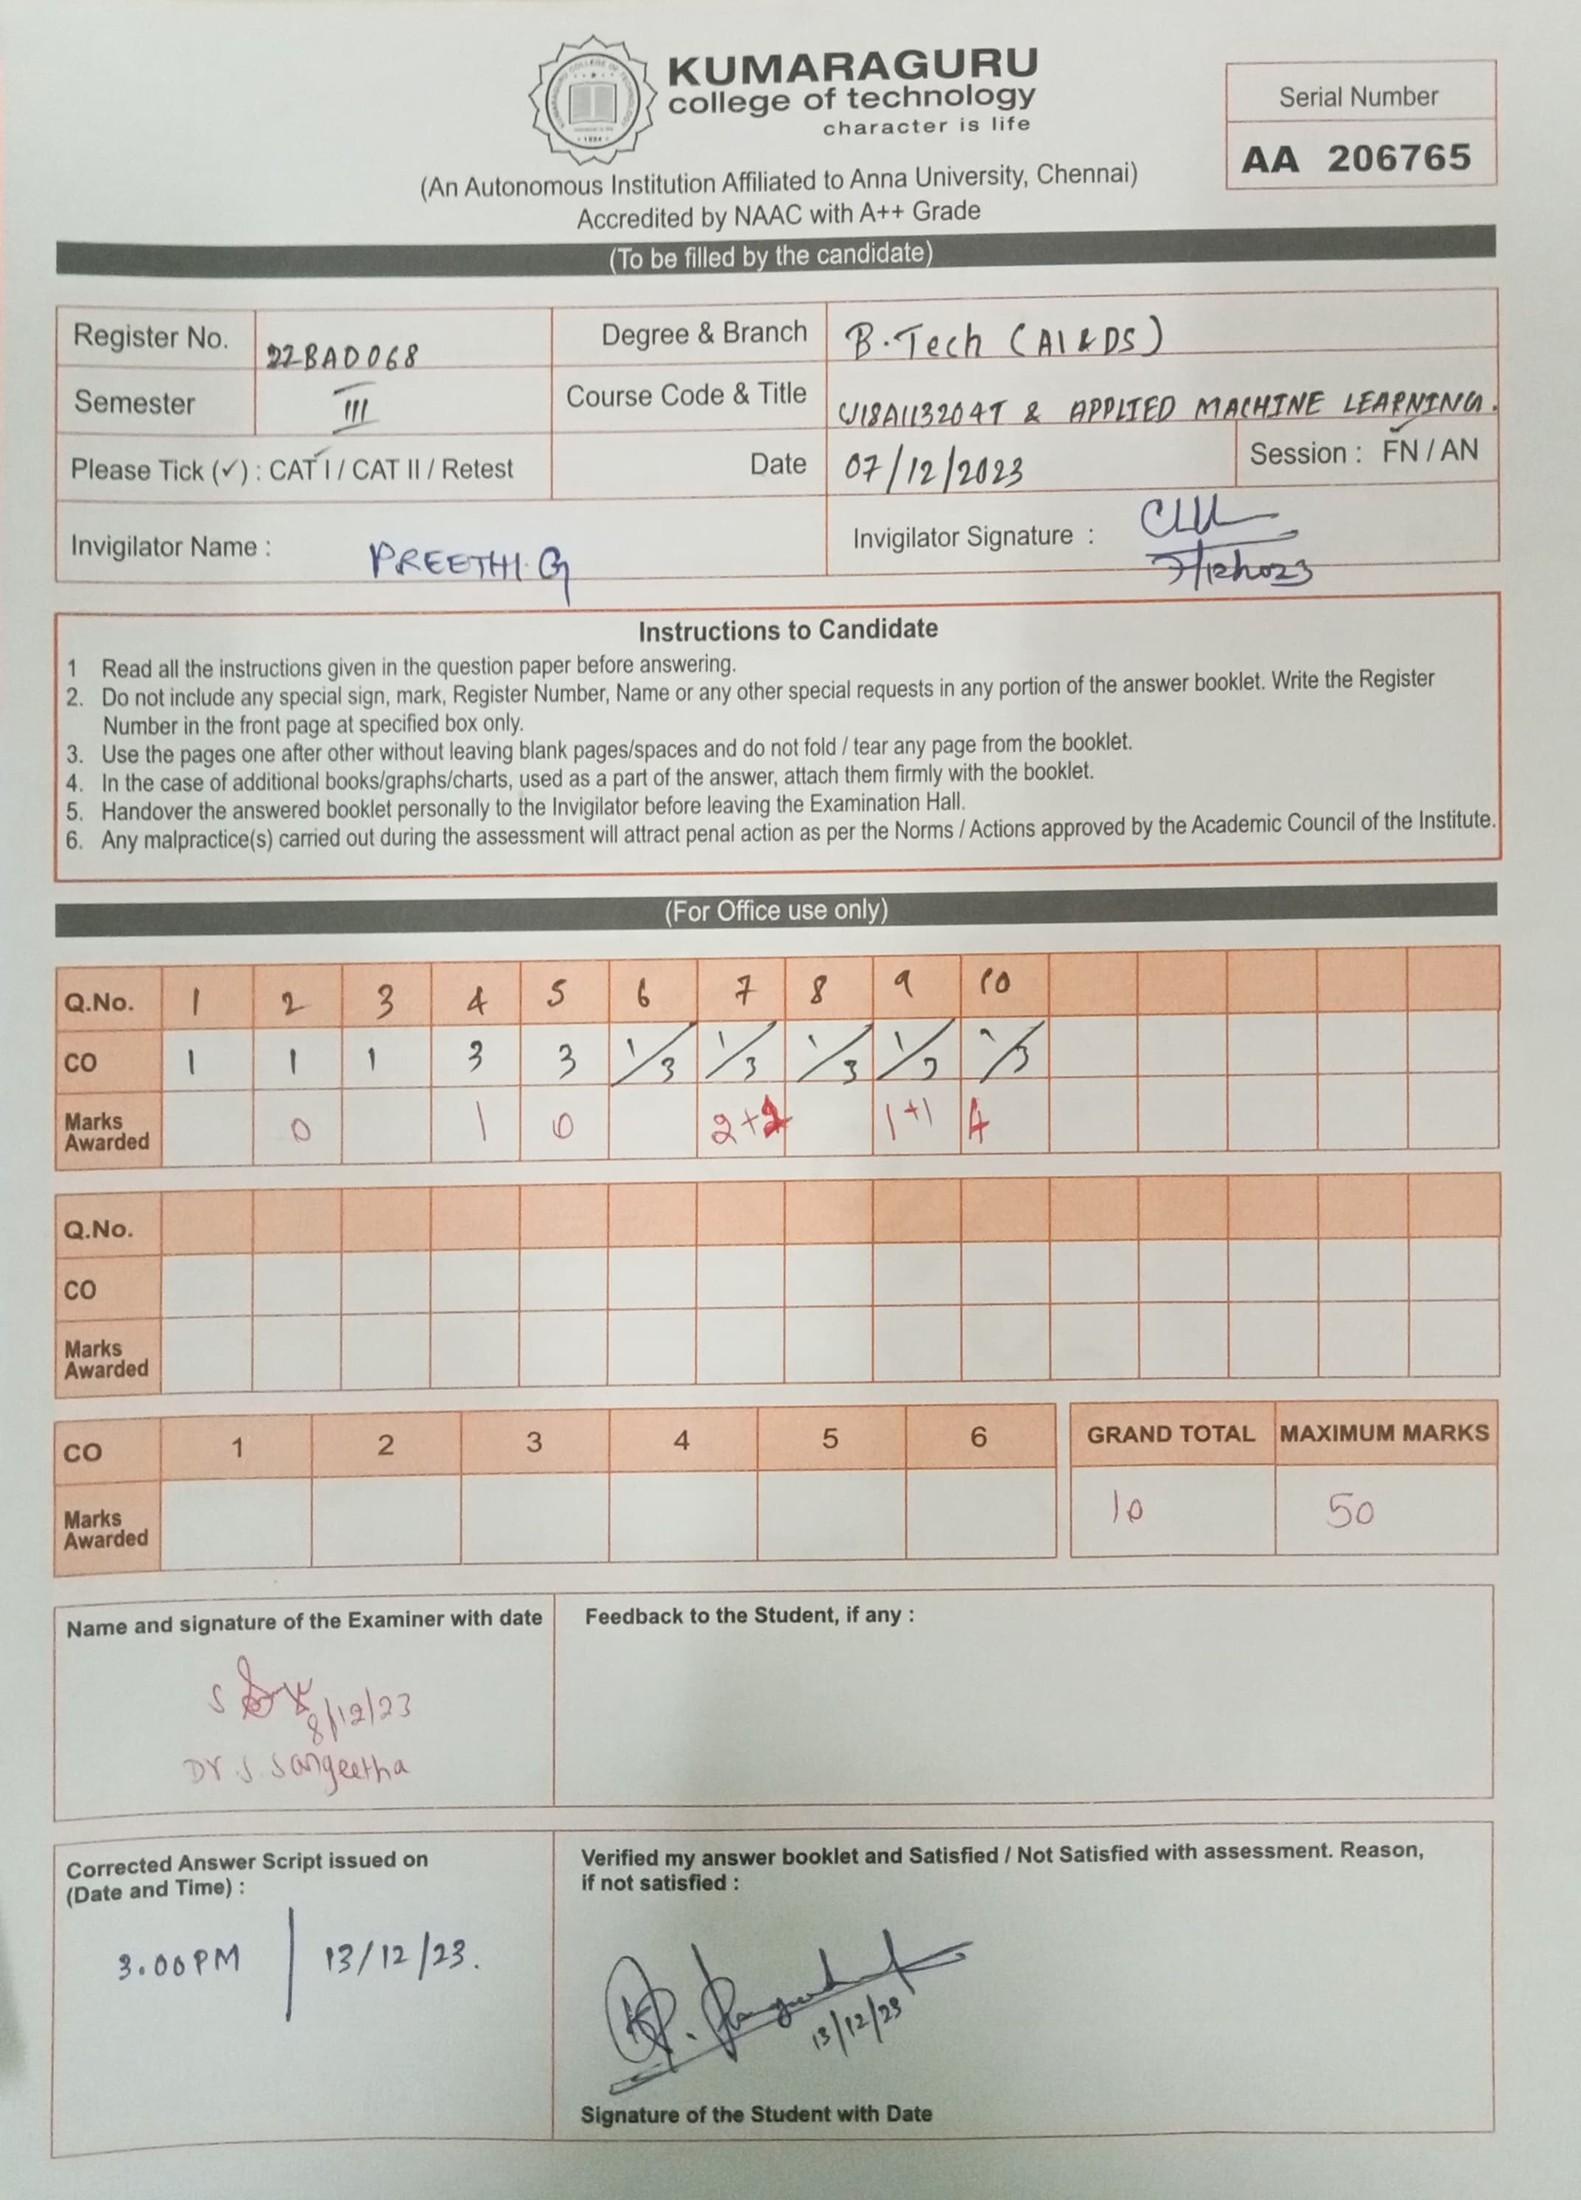 KUMARAGURU
college of technology
character is life
Serial Number
AA 206765
(An Autonomous Institution Affiliated to Anna University, Chennai)
Accredited by NAAC with A++ Grade
(To be filled by the candidate)
Register No. 22BAD068 Degree & Branch B.Tech (AI&DS)
Semester III Course Code & Title U18AII3204T & APPLIED MACHINE LEARNING.
Please Tick (✓) : CAT I / CAT II / Retest Date 07/12/2023 Session : FN / AN
Invigilator Name : PREETHI.G Invigilator Signature :
7/12/2023
Instructions to Candidate
1 Read all the instructions given in the question paper before answering.
2. Do not include any special sign, mark, Register Number, Name or any other special requests in any portion of the answer booklet. Write the Register
Number in the front page at specified box only.
3. Use the pages one after other without leaving blank pages/spaces and do not fold / tear any page from the booklet.
4. In the case of additional books/graphs/charts, used as a part of the answer, attach them firmly with the booklet.
5. Handover the answered booklet personally to the Invigilator before leaving the Examination Hall.
6. Any malpractice(s) carried out during the assessment will attract penal action as per the Norms / Actions approved by the Academic Council of the Institute.
(For Office use only)
Q.No. 1 2 3 4 5 6 7 8 9 10
CO 1 1 1 3 3 1/3 1/3 1/3 1/3 1/3
Marks Awarded 0 1 0 2+2 1+1 4
Q.No.
CO
Marks Awarded
CO 1 2 3 4 5 6 GRAND TOTAL MAXIMUM MARKS
Marks Awarded 10 50
Name and signature of the Examiner with date
8/12/23
Dr S. Sangeetha
Feedback to the Student, if any :
Corrected Answer Script issued on
(Date and Time) :
3.00PM | 13/12/23.
Verified my answer booklet and Satisfied / Not Satisfied with assessment. Reason,
if not satisfied :
13/12/23
Signature of the Student with Date